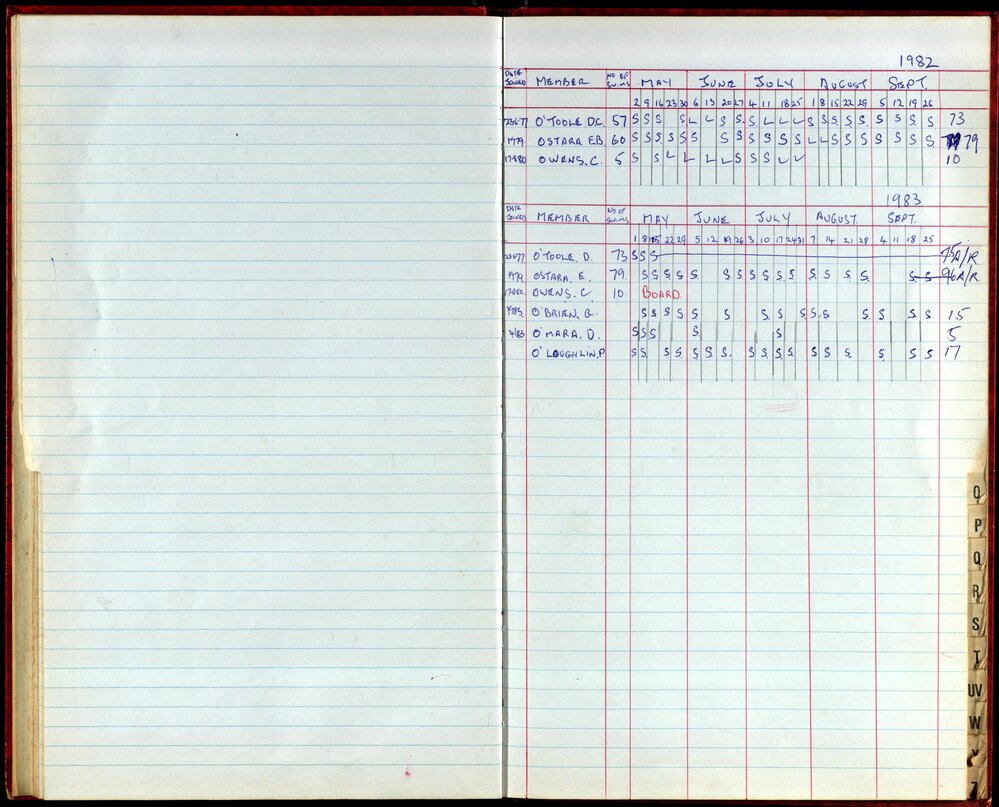 1982
DATE JOINED MEMBER NO OF SWIMS MAY JUNE JULY AUGUST SEPT.
2 9 16 23 30 6 13 20 27 4 11 18 25 1 8 15 22 29 5 12 19 26
O'TOOLE D.C. 57 S S S S L L S S S L L L S S S S S S S S S 73
1979 OSTARA E.B. 60 S S S S S S S S S S S S L L S S S S S S S 79
OWENS. C. 5 S S L L L L S S S L L 10
1983
DATE JOINED MEMBER NO OF SWIMS MAY JUNE JULY AUGUST SEPT.
1 8 15 22 29 5 12 19 26 3 10 17 24 31 7 14 21 28 4 11 18 25
O'TOOLE. D. 73 S S S 75 A/R.
1979 OSTARA. E. 79. S S S S S S S S S S S S S S S S S 96 A/R.
OWENS. C 10. BOARD
O'BRIEN. G. S S S S S S S S S S S S S S S 15
O'MARA. D. S S S S S 5
O'LOUGHLIN. P S S S S S S S S S S S S S S S S 17
O
P
Q
R
S
T
UV
W